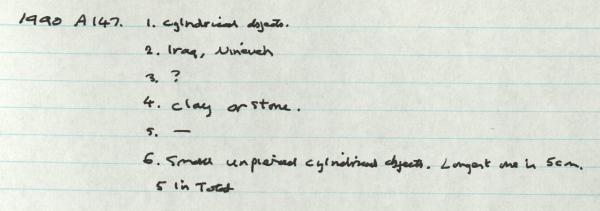 1990 A147. 1. Cylindrical objects.
2. Iraq, Nineveh
3. ?
4. Clay or stone.
5. —
6. Small unpierced cylindrical objects. Longest one is 5cm.
5 in Total